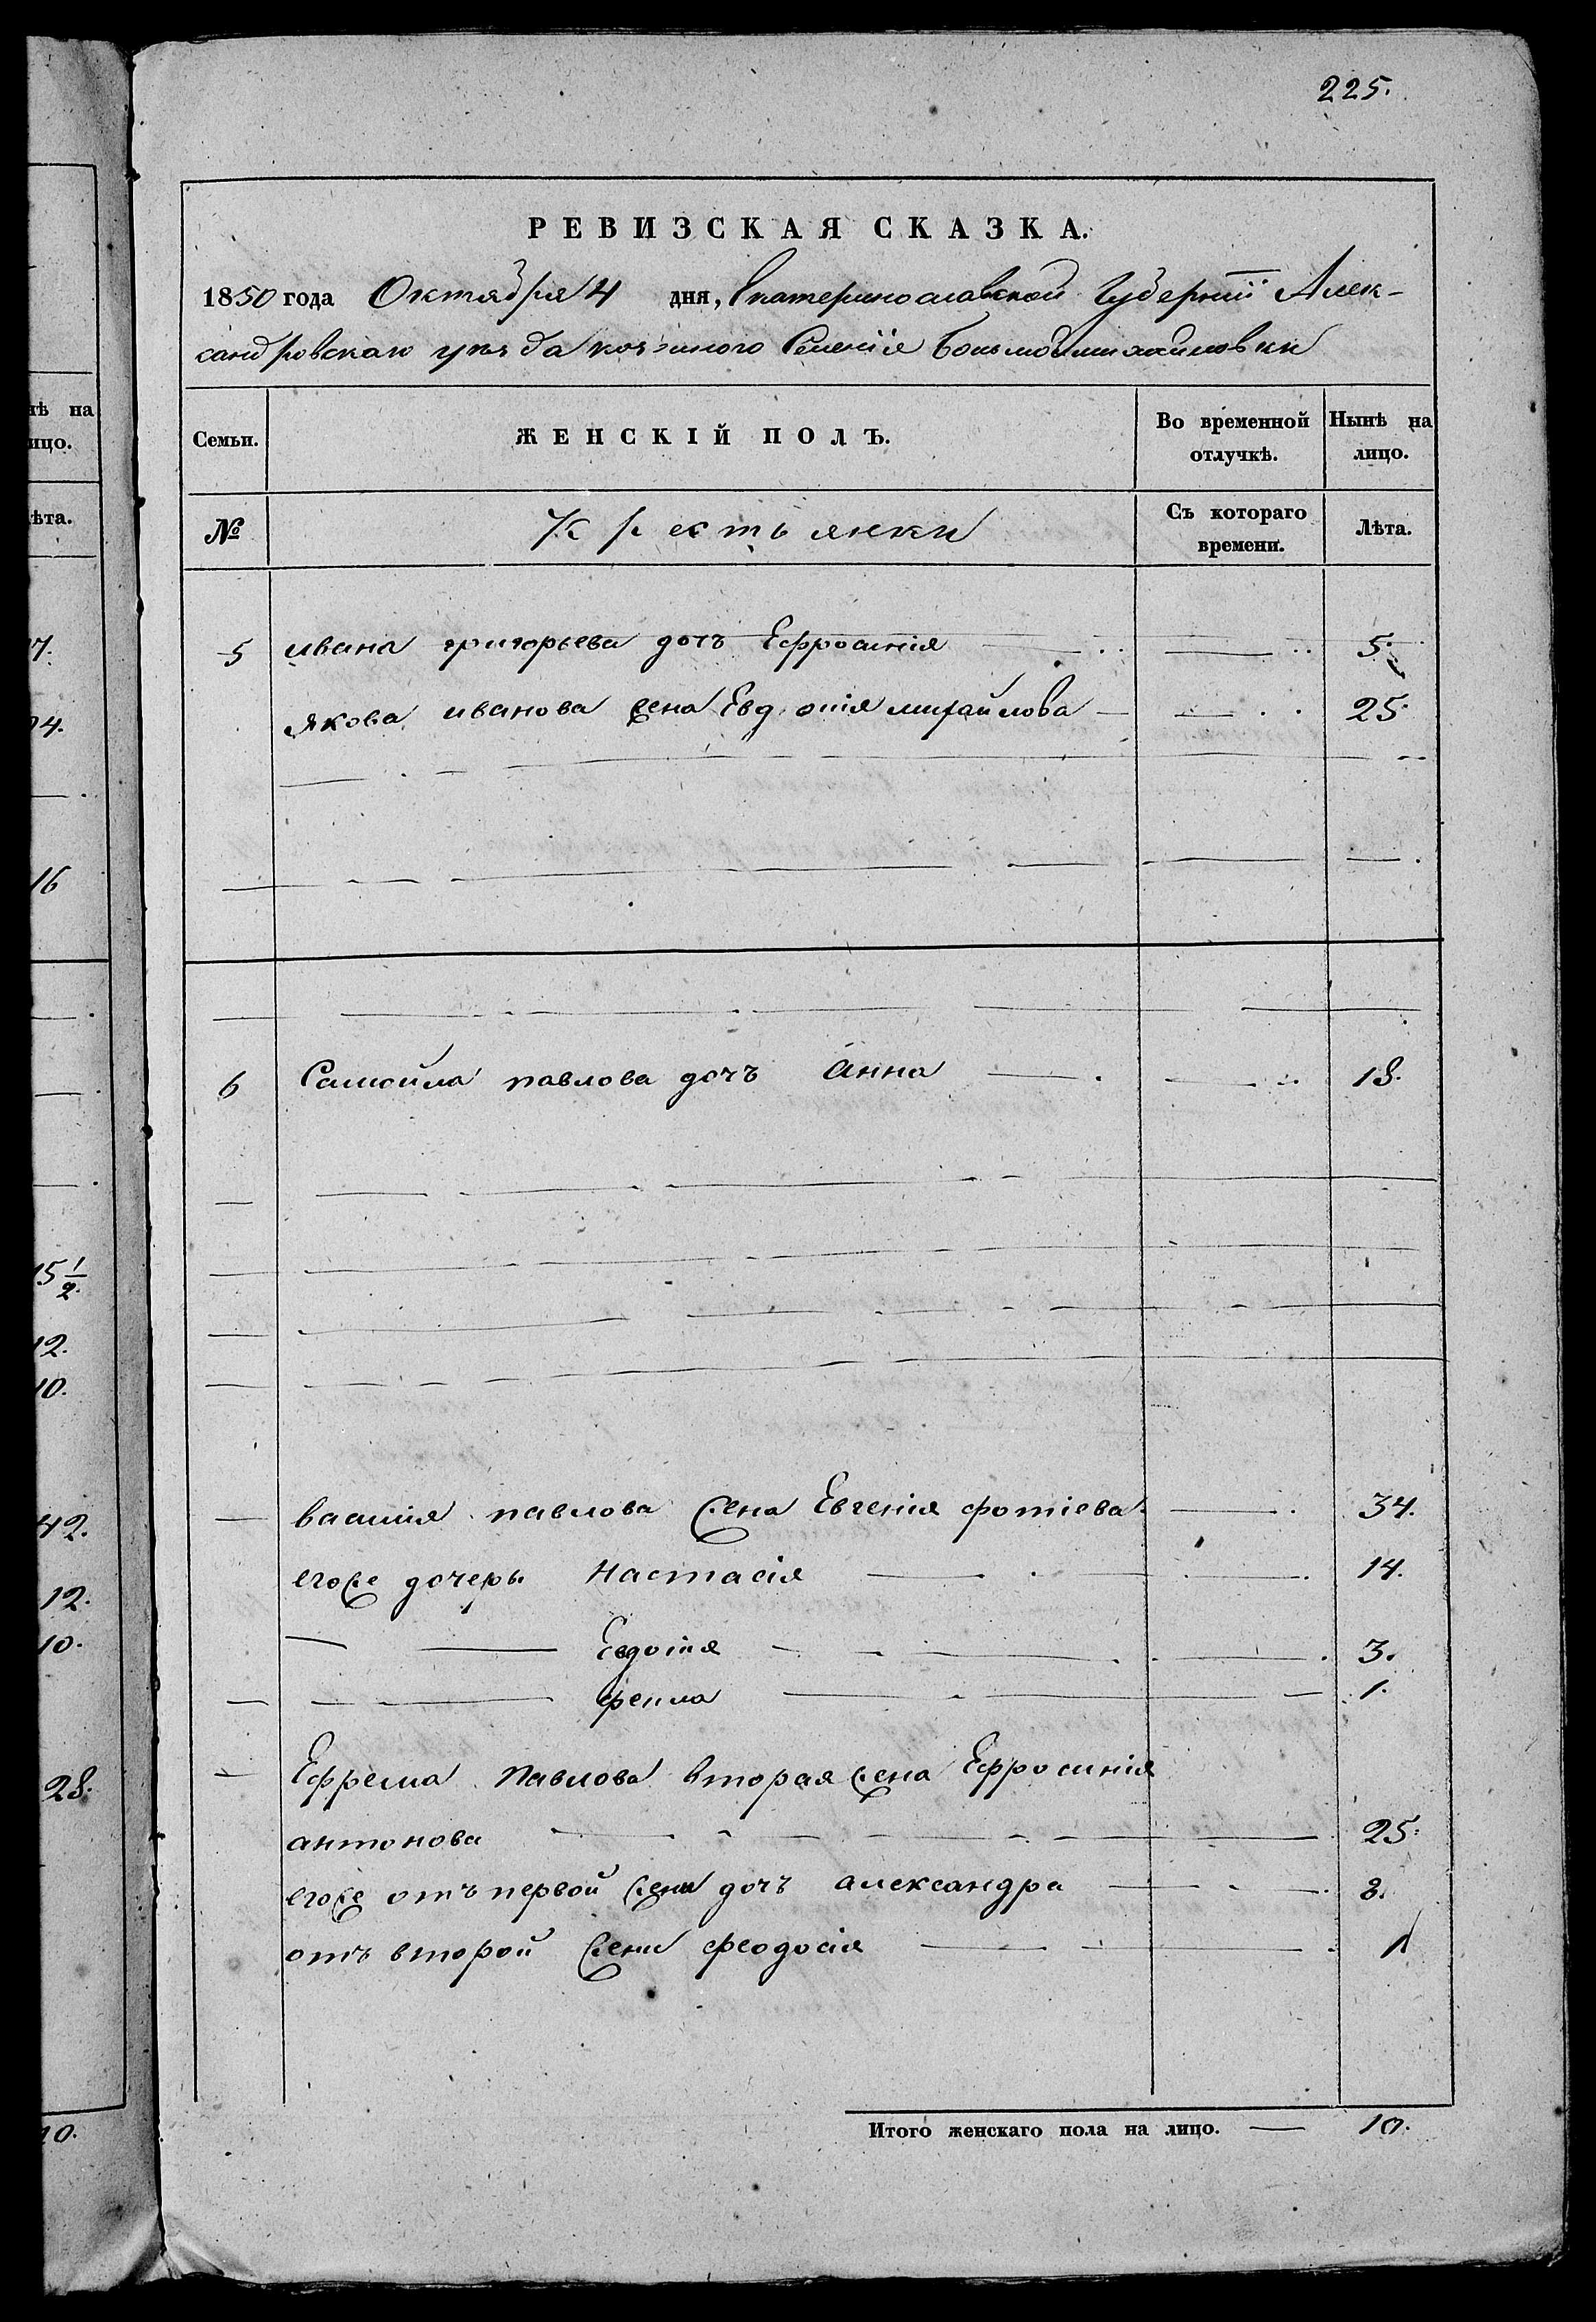 225.
РЕВИЗСКАЯ СКАЗКА.
1850 года Октября 4 дня, Екатеринославской Губернии Алек-
сандровскаго уезда казенного Селенія Большой михайловки
Семьи. ЖЕНСКІЙ ПОЛЪ. Во временной отлучкѣ. Нынѣ на лицо.
№ Крестьянки Съ котораго времени. Лѣта.
5 ивана григорьева дочь Ефросинія 5.
якова иванова жена Евдокія михайлова 25.
6 Самойла павлова дочь Анна 18.
василія павлова жена Евгенія фотіева 34.
егоже дочери Настасія 14.
Евдокія 3.
фекла 1.
Ефрема Павлова вторая жена Ефросинія
антонова 25.
егоже отъ первой жени дочъ александра 8.
отъ второй жени феодосія 1
Итого женскаго пола на лицо. 10.
нѣ на
ицо.
ѣта.
7.
04.
16
15 1/2.
12.
10.
42.
12.
10.
28.
10.